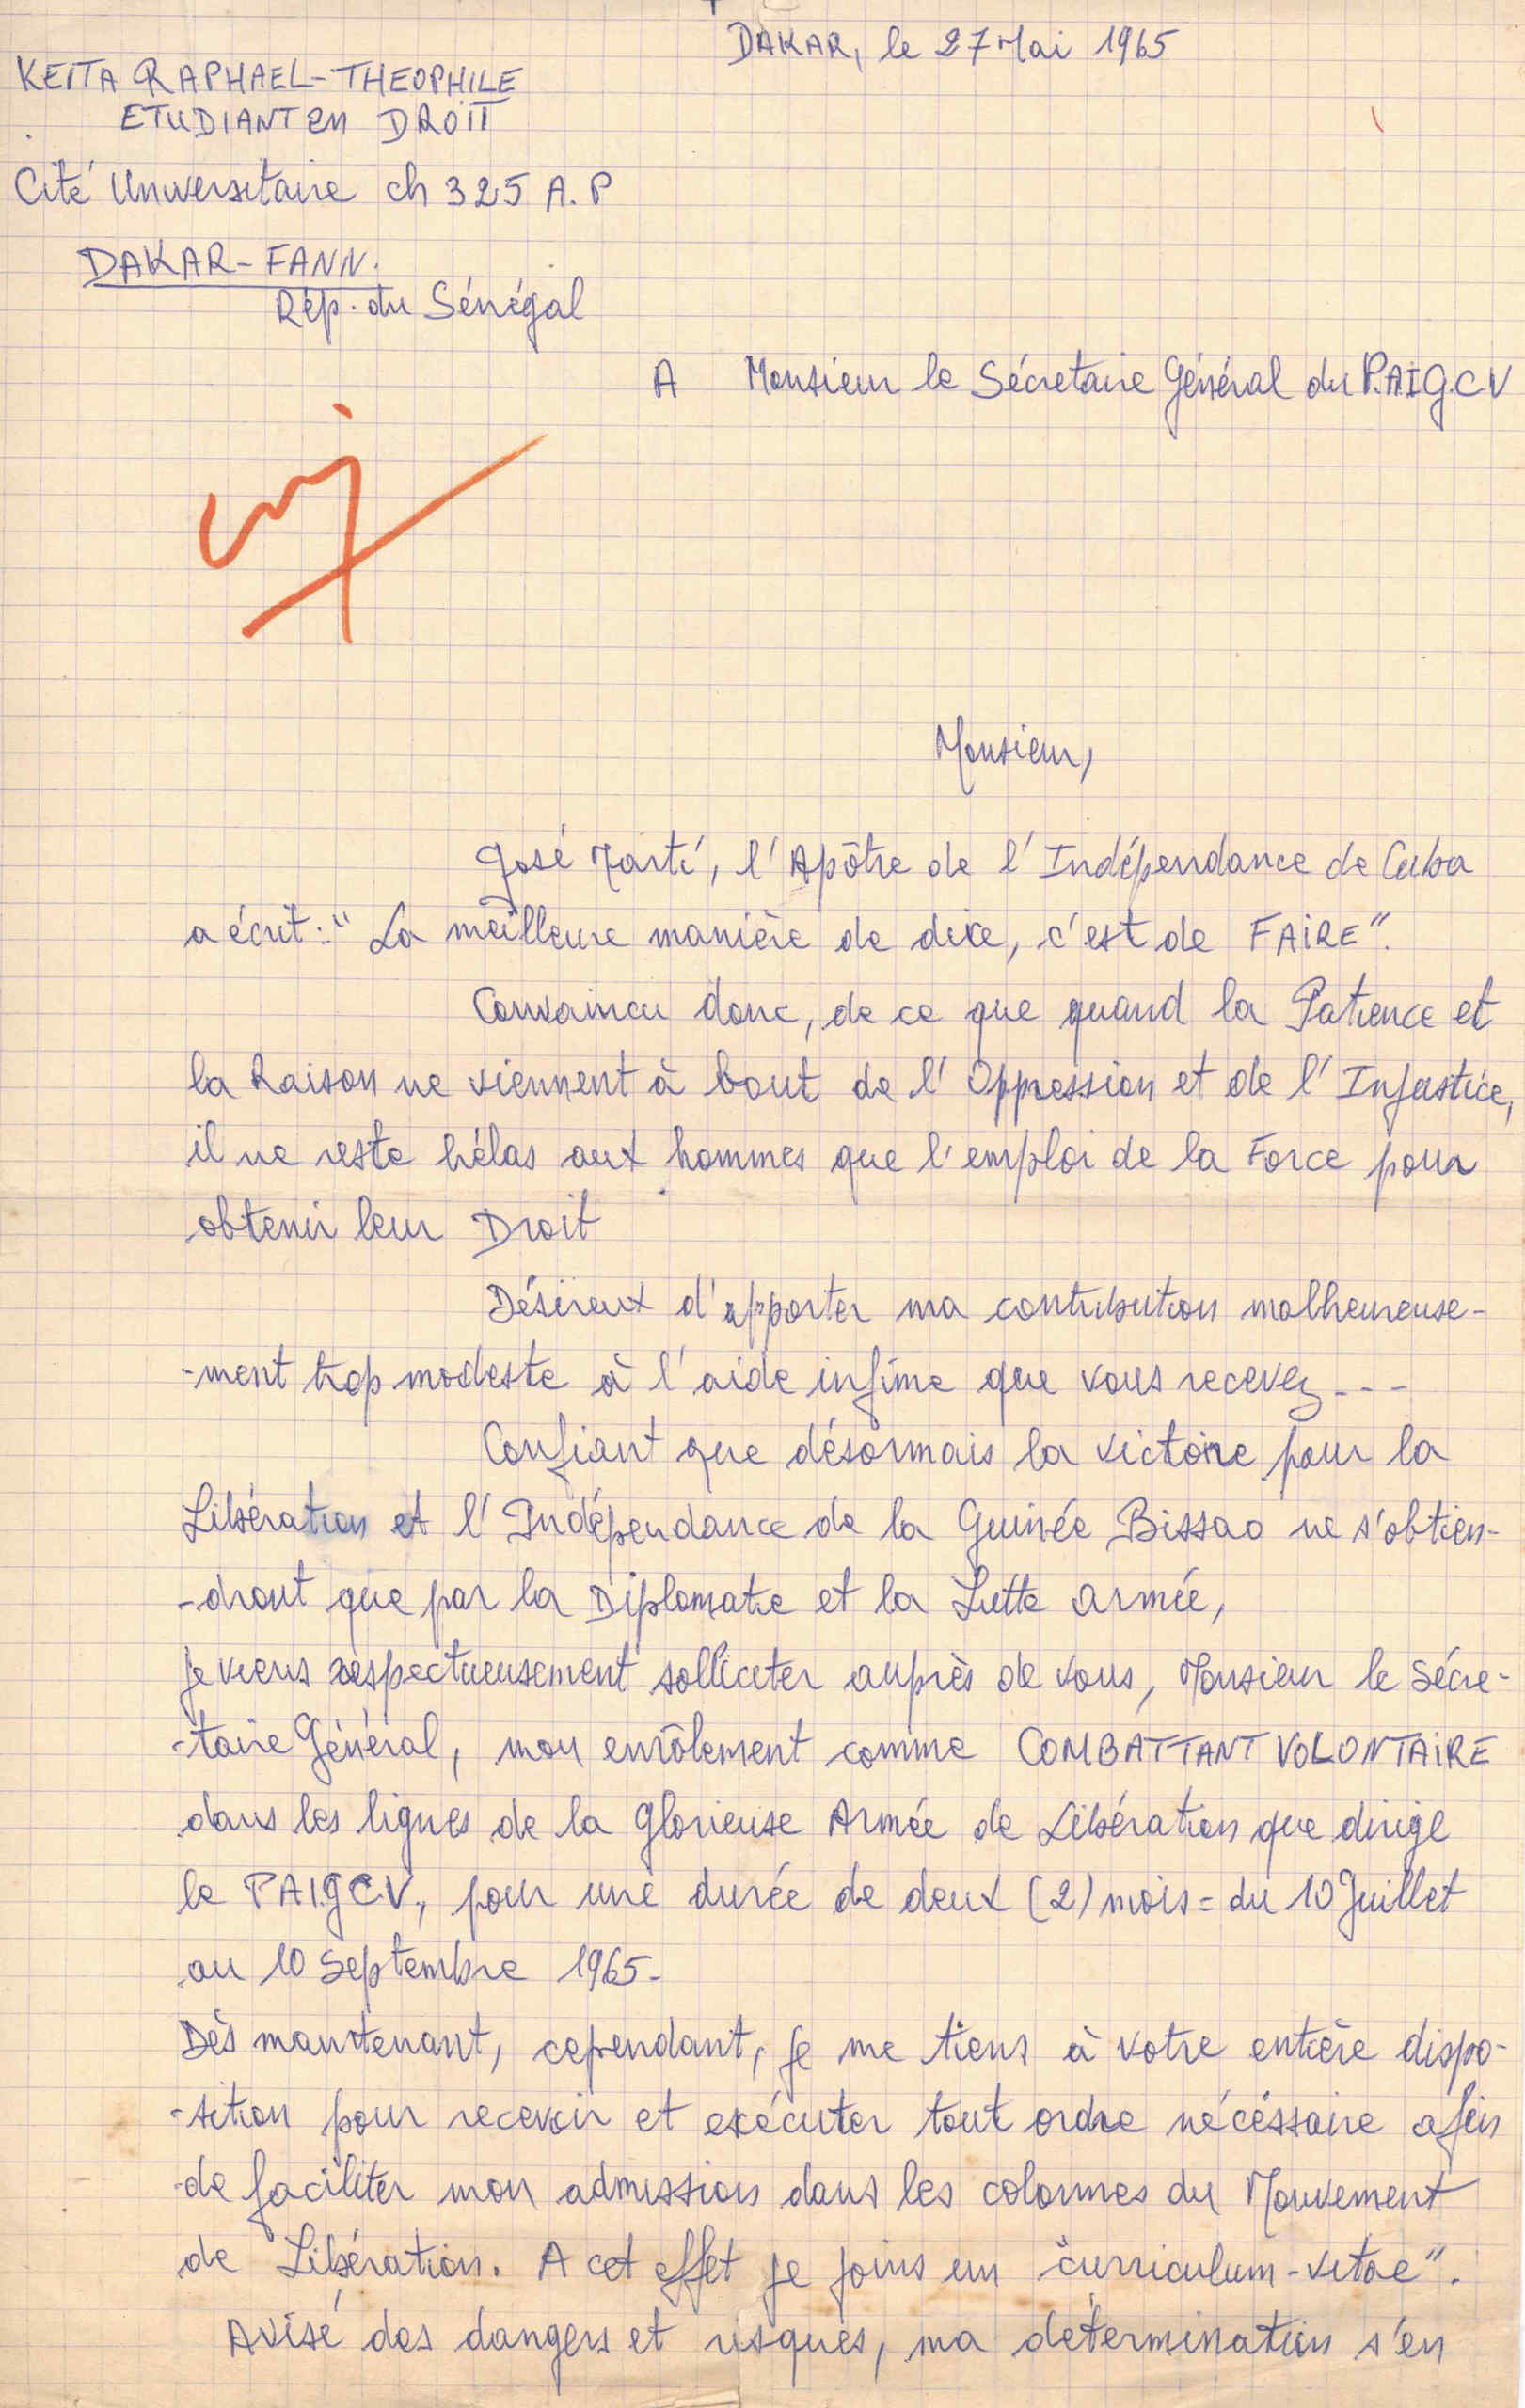 DAKAR, le 27 Mai 1965
KEITA RAPHAEL-THEOPHILE
ETUDIANT en DROIT
Cité Universitaire ch 325 A.P
DAKAR-FANN.
Rép. du Sénégal
A Monsieur le Sécretaire Général du P.A.I.G.C.V
Monsieur,
José Marti, l'Apôtre de l'Indépendance de Cuba
a écrit: "La meilleure manière de dire, c'est de FAIRE".
Convaincu donc, de ce que quand la Patience et
la Raison ne viennent à bout de l'Oppression et de l'Injustice,
il ne reste hélas aux hommes que l'emploi de la Force pour
obtenir leur Droit
Désireux d'apporter ma contribution malheureuse-
-ment trop modeste à l'aide infime que vous recevez---
Confiant que désormais la victoire pour la
Libération et l'Indépendance de la Guinée Bissao ne s'obtien-
-dront que par la Diplomatie et la Lutte armée,
je viens respectueusement solliciter auprès de vous, Monsieur le Sécre-
-taire Général, mon enrôlement comme COMBATTANT VOLONTAIRE
dans les lignes de la Glorieuse Armée de Libération que dirige
le P.A.I.G.C.V., pour une durée de deux (2) mois = du 10 Juillet
au 10 Septembre 1965-
Dès maintenant, cependant, je me tiens à votre entière dispo-
-sition pour recevoir et exécuter tout ordre nécéssaire afin
de faciliter mon admission dans les colonnes du Mouvement
de Libération. A cet effet je joins un "curriculum-vitae".
Avisé des dangers et risques, ma détermination s'en